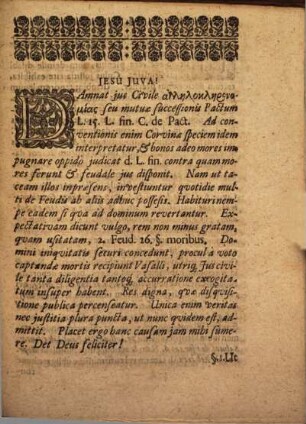 JESU JUVA!
DAmnat jus Civile ἀλληλοκληρονο-
μίας seu mutuæ successionis Pactum
L. 15. L. fin. C. de Pact. Ad con-
ventionis enim Corvinæ speciem idem
interpretatur, & bonos adeo mores im-
pugnare oppidò judicat d. L. fin. contra quam mo-
res ferunt & feudale jus disponit. Nam ut ta-
ceam illos inpræsens, investiuntur quotidie mul-
ti de Feudis ab aliis adhuc possessis. Habituri nem-
pe eadem si qua ad dominum revertantur. Ex-
pectativam dicunt vulgo, rem non minus gratam,
quam usitatam, 2. Feud. 26. §. moribus, Do-
mini iniquitatis securi concedunt, procul a voto
captandæ mortis recipiunt Vasalli, utriq; Jus civi-
le tanta diligentia tantoq; accurratione excogita-
tum insuper habent. Res digna, quæ disquisi-
tione publica percenseatur. Unica enim veritas
nec justitia plura puncta, ut nunc quidem est, ad-
mittit. Placet ergo hanc causam jam mihi sume-
re. Det Deus feliciter!